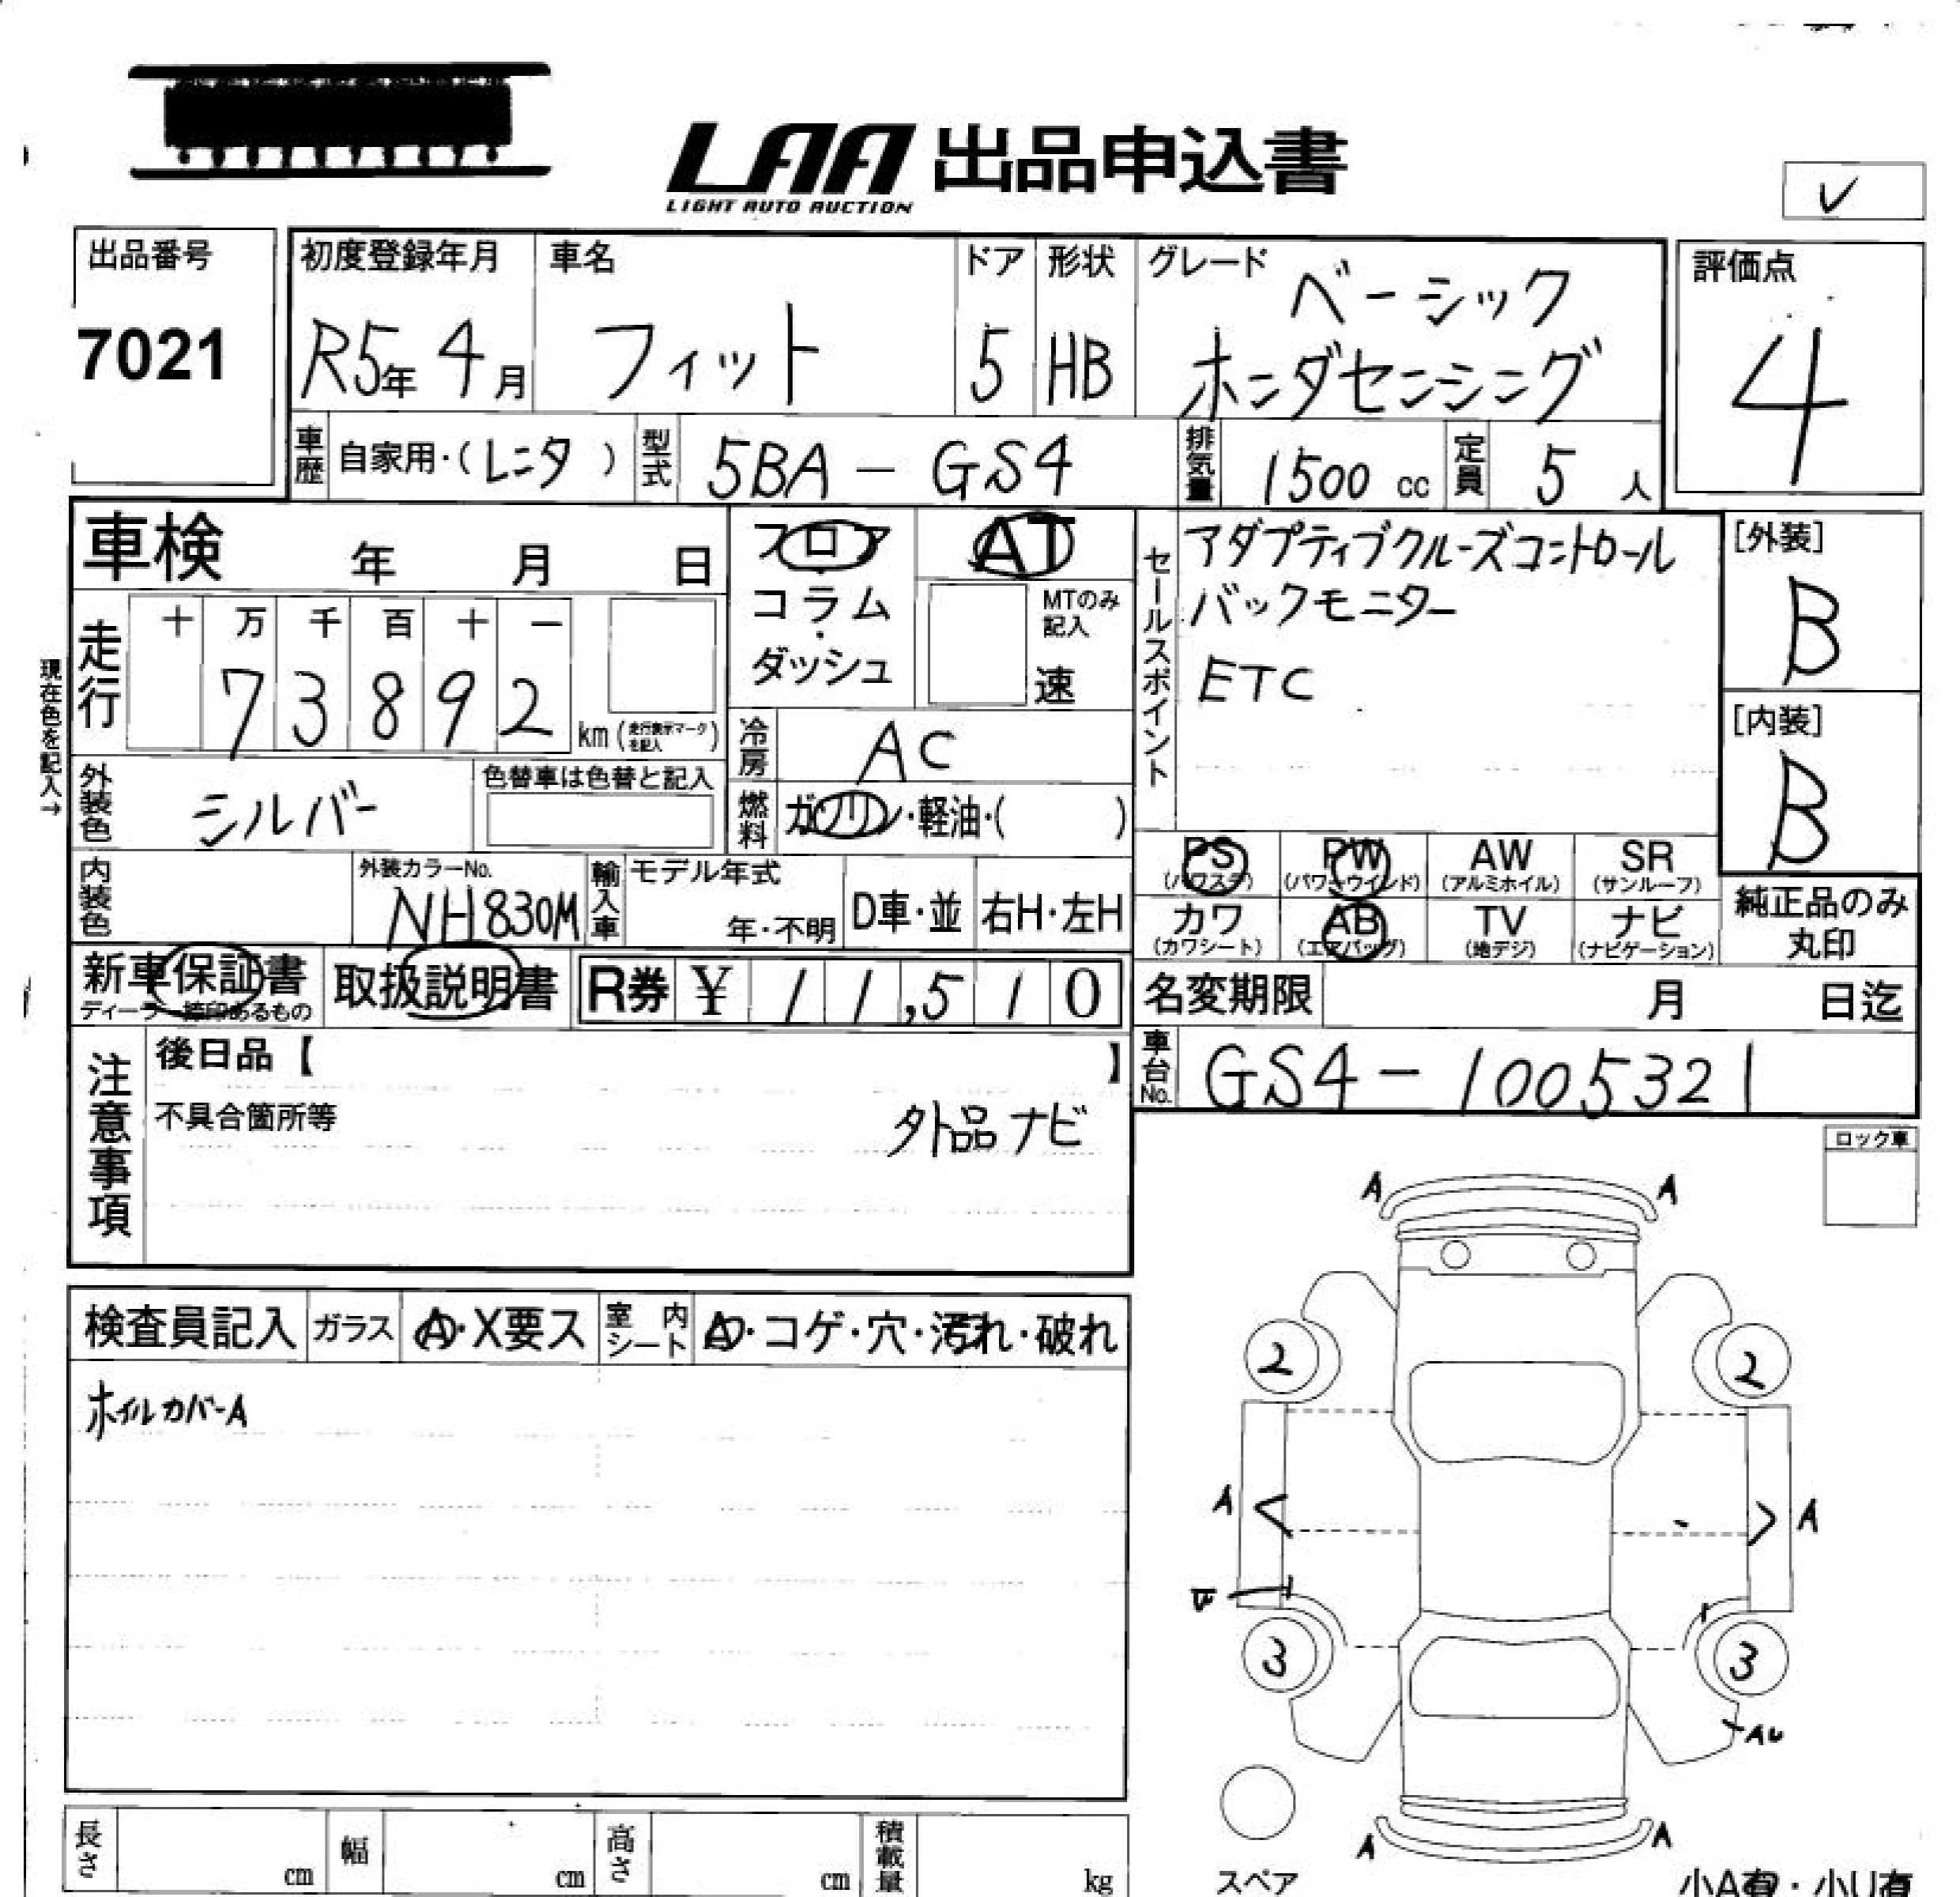 LAA 出品申込書
LIGHT AUTO AUCTION
✓
出品番号
7021
初度登録年月
R5年 4月
車名
フィット
ドア
5
形状
HB
グレード
ベーシック
ホンダセンシング
評価点
4
車歴
自家用・(レンタ)
型式
5BA-GS4
排気量
1500 cc
定員
5 人
車検 年 月 日
フロア・コラム・ダッシュ
AT
MTのみ記入
速
セールスポイント
アダプティブクルーズコントロール
バックモニター
ETC
[外装]
B
[内装]
B
現在色を記入→
走行
十 万 千 百 十 一
7 3 8 9 2
km(走行表示マークを記入)
冷房
AC
外装色
シルバー
色替車は色替と記入
燃料
ガソリン・軽油・( )
内装色
外装カラーNo.
NH830M
輸入車
モデル年式
年・不明
D車・並
右H・左H
PS (パワステ)
PW (パワーウインド)
AW (アルミホイル)
SR (サンルーフ)
カワ (カワシート)
AB (エアバッグ)
TV (地デジ)
ナビ (ナビゲーション)
純正品のみ
丸印
新車保証書
取扱説明書
R券 ¥ 11,510
名変期限 月 日迄
車台No.
GS4-1005321
注意事項
後日品【 】
不具合箇所等
外品ナビ
ロック車
検査員記入
ガラス
A・X要ス
室内シート
A・コゲ・穴・汚れ・破れ
ホイルカバーA
A A
2 2
A A
3 3
AU
A A
スペア
小A有・小U有
長さ cm
幅 cm
高さ cm
積載量 kg